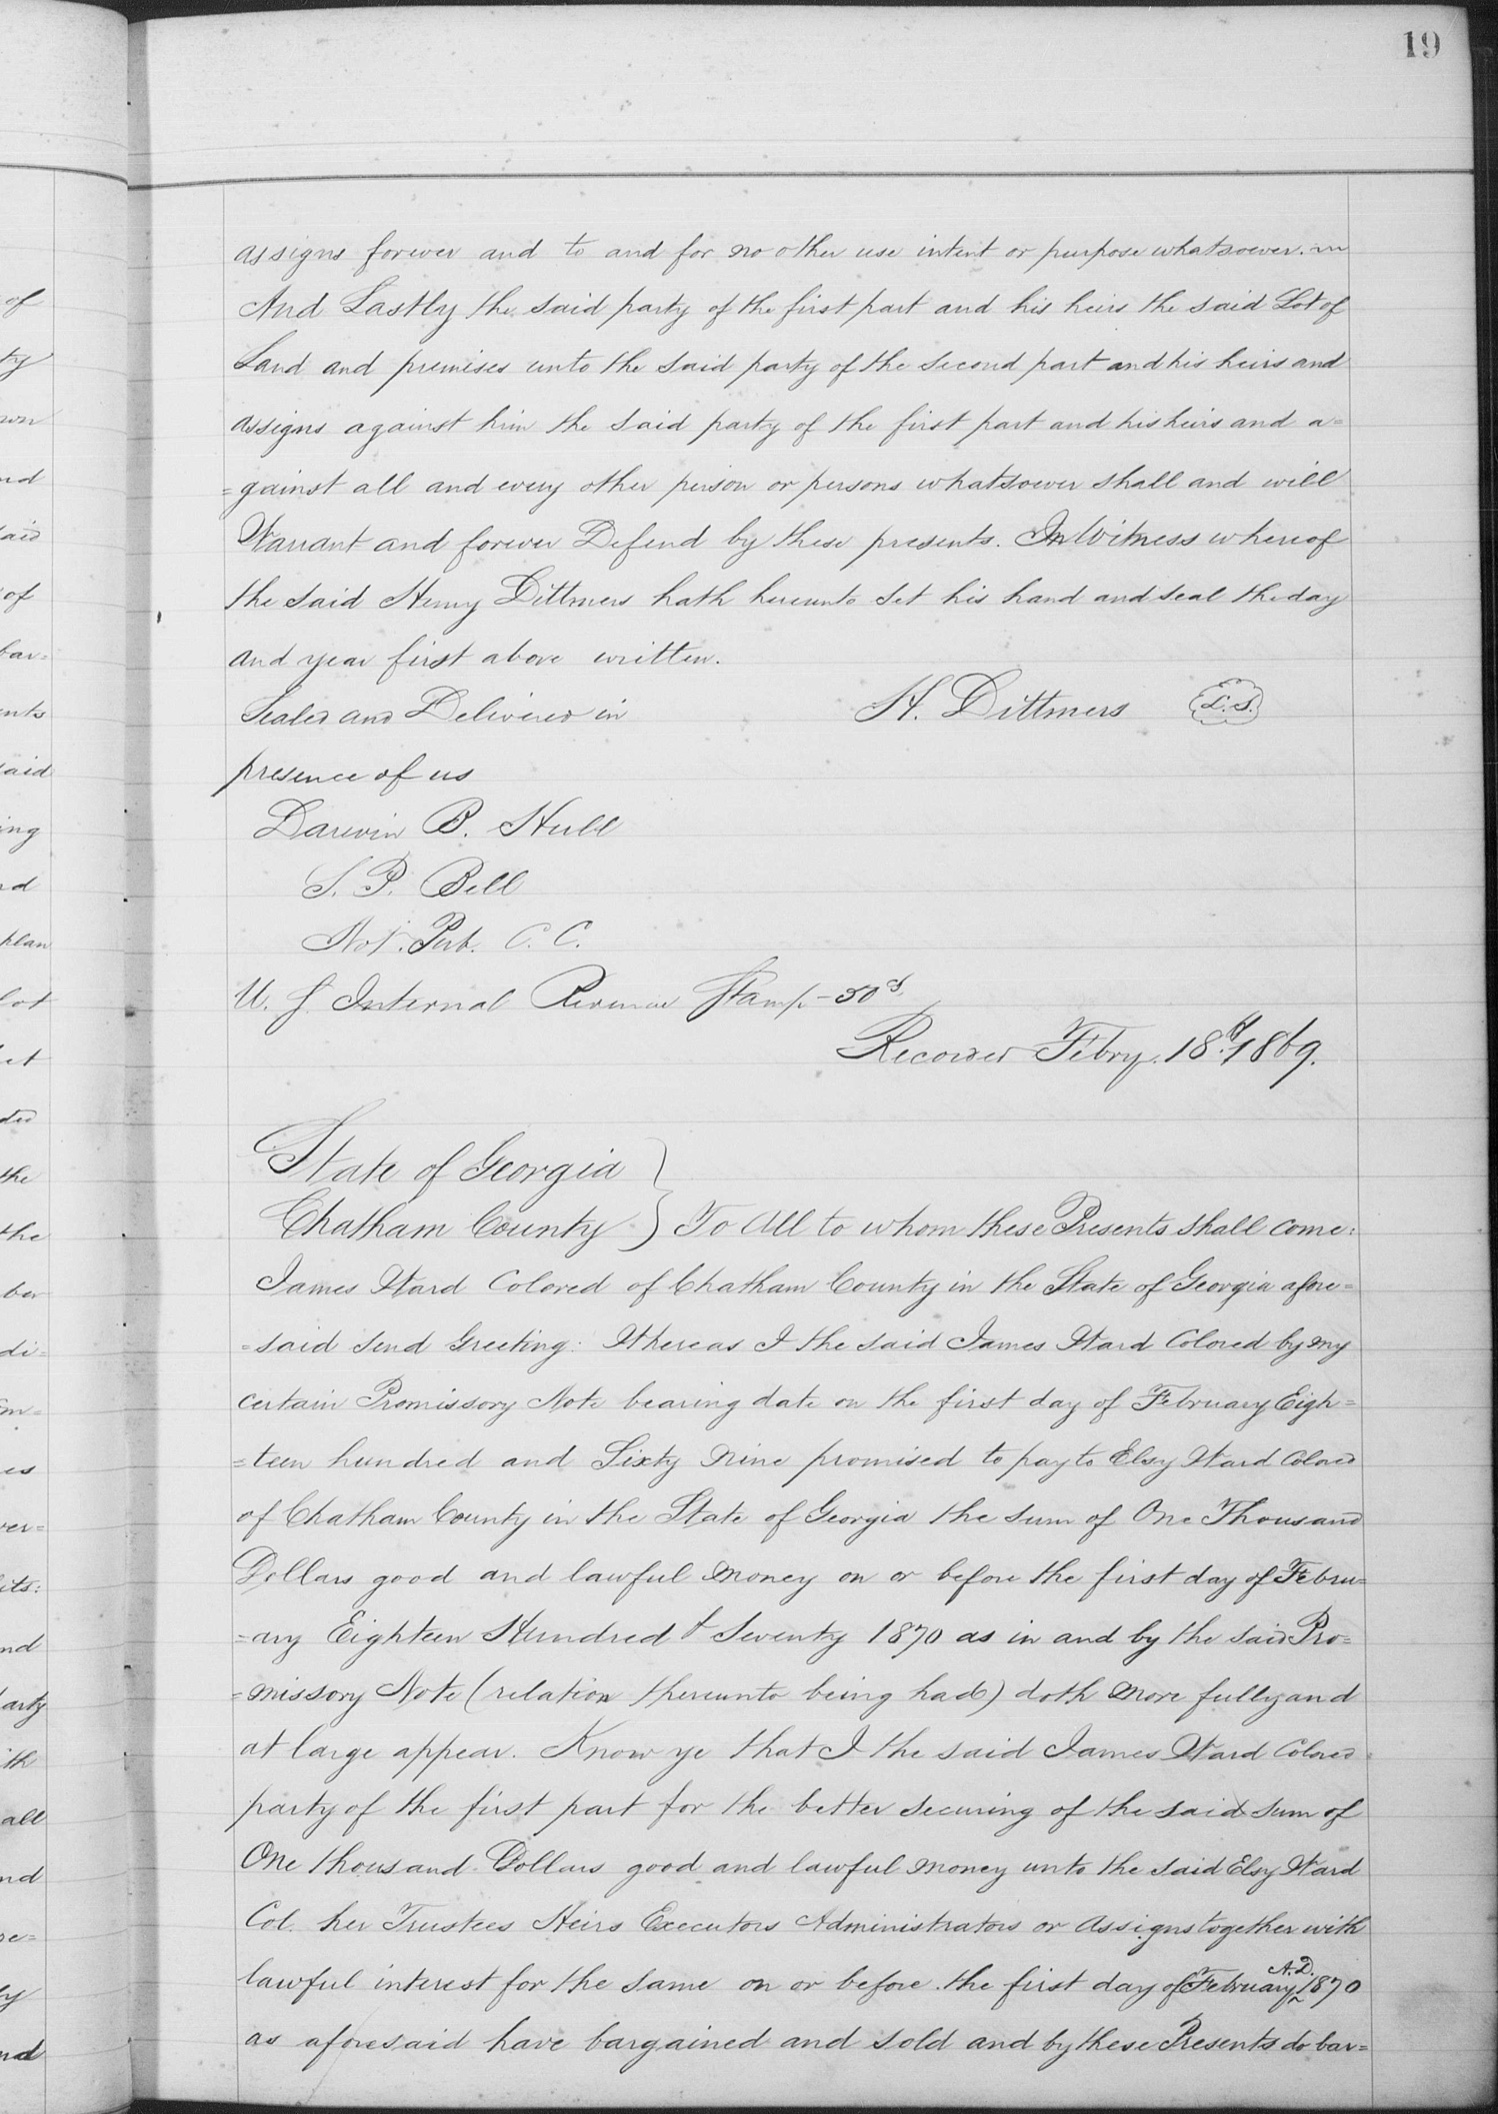 19
assigns forever and to and for no other use intent or purpose whatsoever.
And Lastly the said party of the first part and his heirs the said Lot of
Land and premises unto the said party of the second part and his heirs and
assigns against him the said party of the first part and his heirs and a=
=gainst all and every other person or persons whatsoever shall and will
Warrant and forever Defend by these presents. In Witness whereof
the said Henry Dittmers hath hereunto set his hand and seal the day
and year first above written.
Sealed and Delivered in H. Dittmers L.S.
presence of us
Darwin B. Hull
S. P. Bell
Not. Pub. C. C.
U. S. Internal Revenue Stamp - 50c.
Recorded Febry. 18d. 1869.
State of Georgia
Chatham County } To All to whom these Presents shall come:
James Ward Colored of Chatham County in the State of Georgia afore=
=said send Greeting: Whereas I the said James Ward Colored by my
certain Promissory Note bearing date on the first day of February Eigh=
=teen hundred and Sixty nine promised to pay to Elsy Ward Colored
of Chatham County in the State of Georgia the sum of One Thousand
Dollars good and lawful money on or before the first day of Febru=
=ary Eighteen Hundred & Seventy 1870 as in and by the said Pro=
=missory Note (relation thereunto being had) doth more fully and
at large appear. Know ye that I the said James Ward Colored
party of the first part for the better securing of the said sum of
One thousand Dollars good and lawful money unto the said Elsy Ward
Col. her Trustees Heirs Executors Administrators or assigns together with
lawful interest for the same on or before the first day of February A.D. 1870
as aforesaid have bargained and sold and by these Presents do bar=